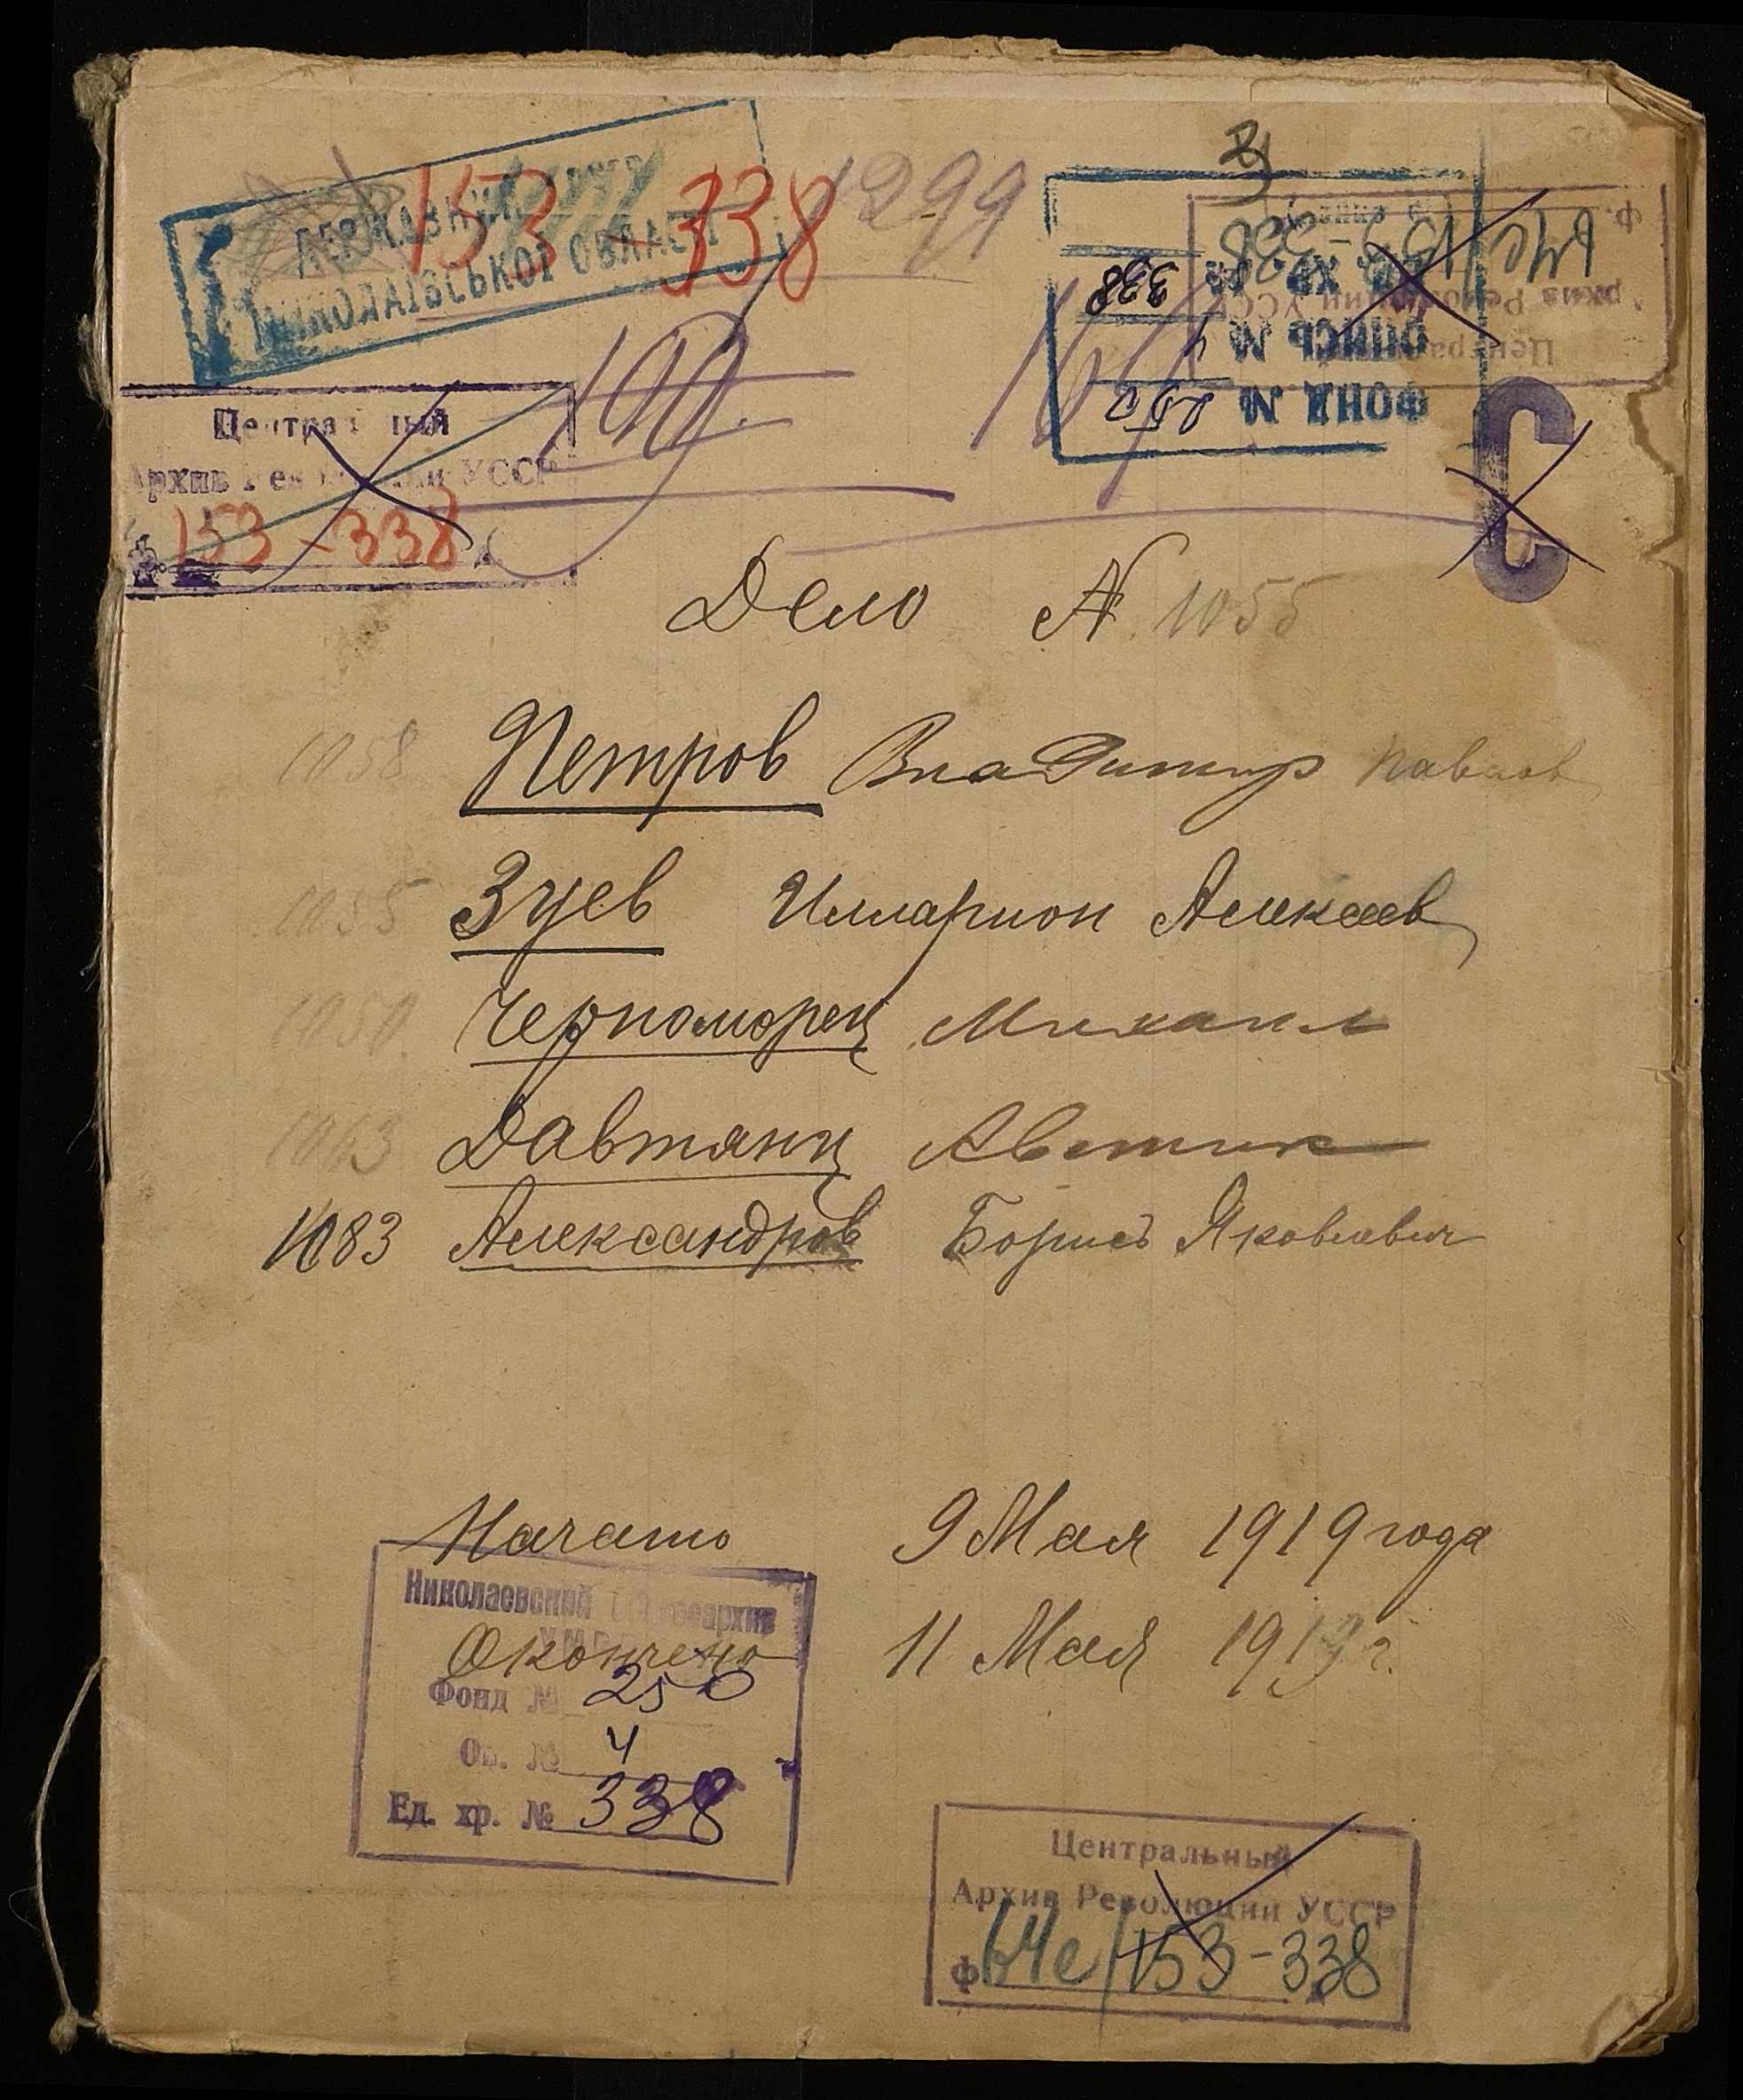 ДЕРЖАВНИЙ
МИКОЛАЇВСЬКОЇ ОБЛАСТІ
153-338
1299
ФОНД № 250
ОПИСЬ № 4
ЕД. ХР. № 338
64с/153-338
Центральный
Архив Революции УССР
Ф. 153-338
С
Дело № 1055
1058 Петров Владимир Павлов
1055 Зуев Илларион Алексеев
1050 Черноморец Михаил
1063 Давтянц Аветик
1083 Александров Борис Яковлевич
Начато 9 Мая 1919 года
Окончено 11 Мая 1919 г.
Николаевский Госархив
Фонд № 250
Оп. № 4
Ед. хр. № 338
Центральный
Архив Революции УССР
Ф 64с/153-338